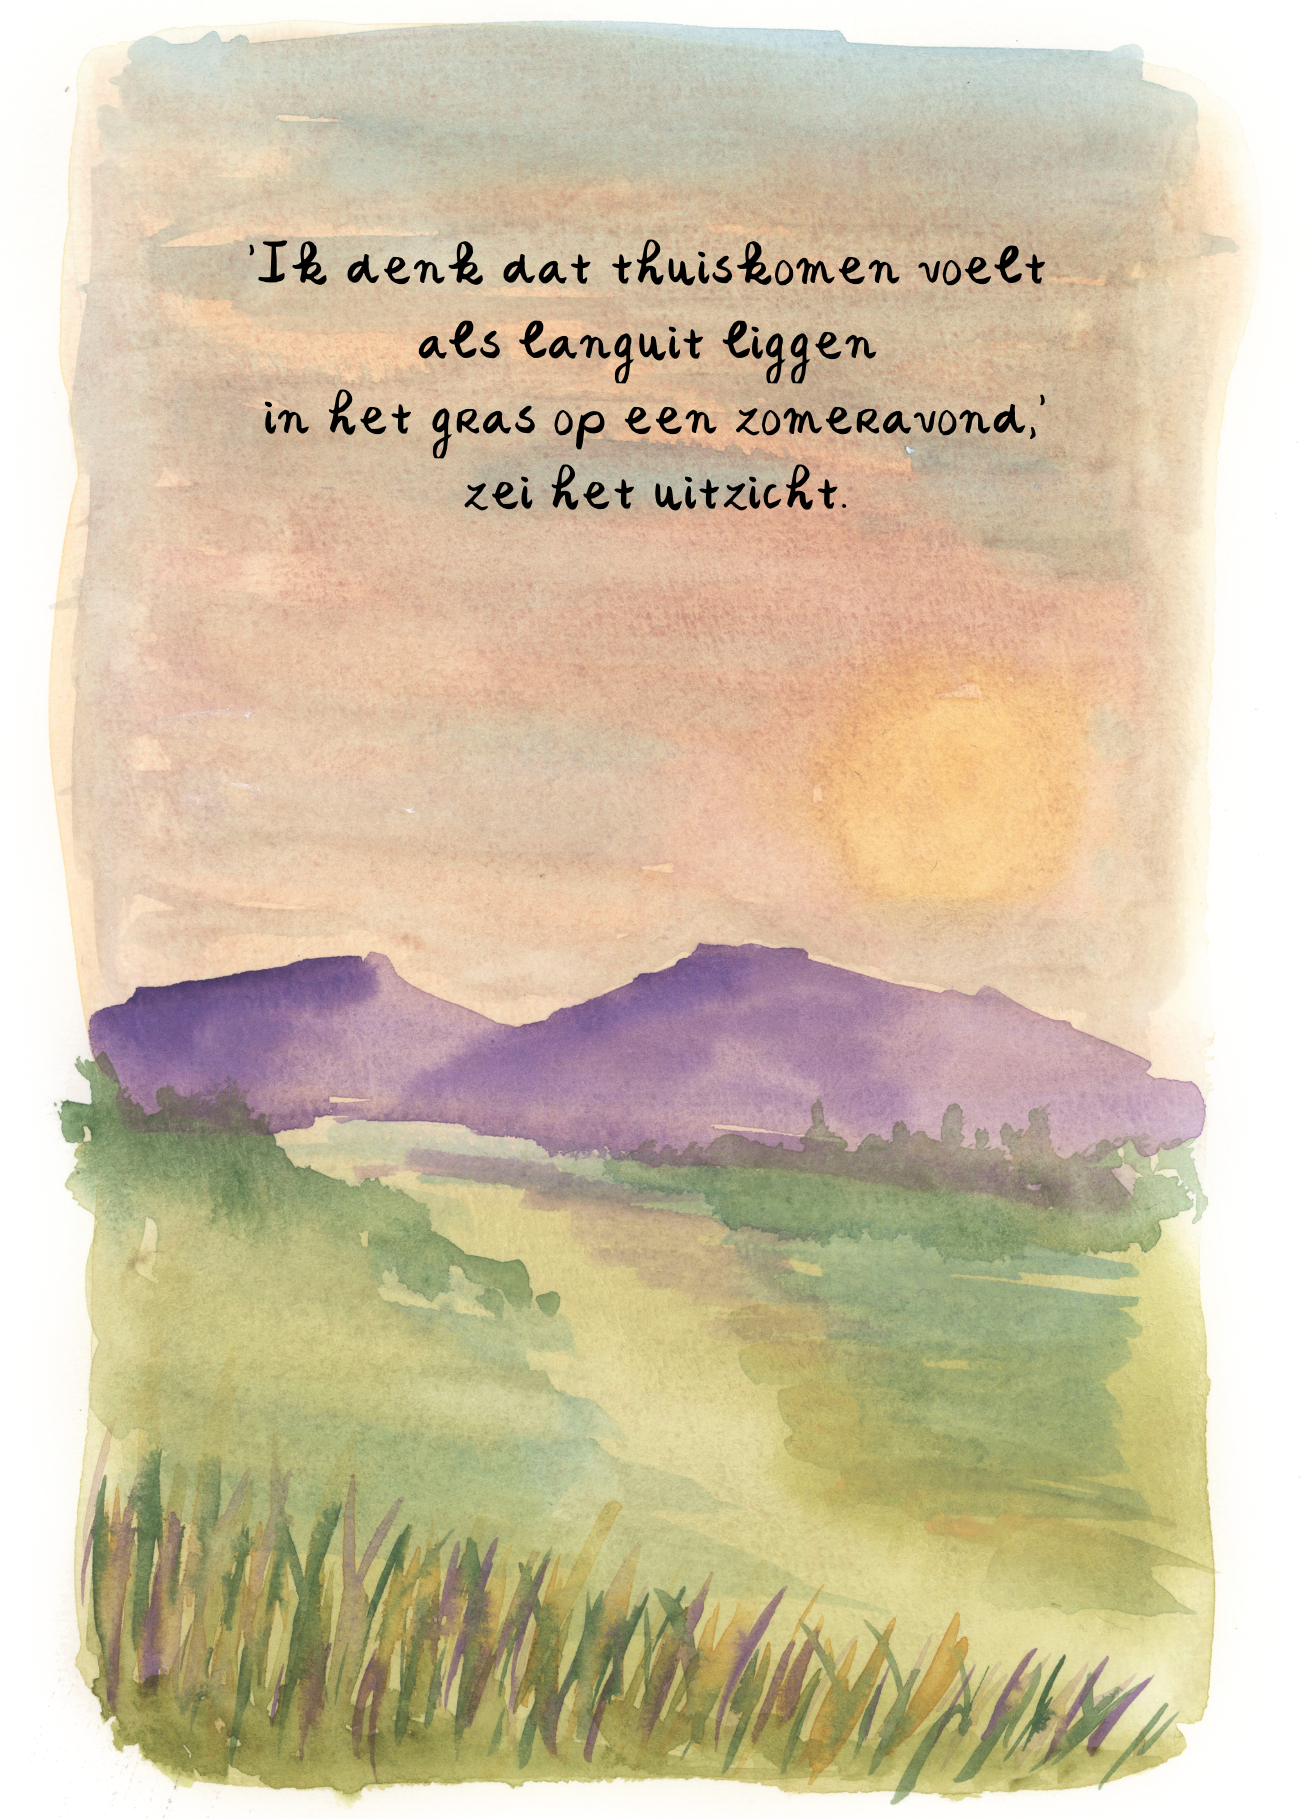 'Ik denk dat thuiskomen voelt
als languit liggen
in het gras op een zomeravond,'
zei het uitzicht.